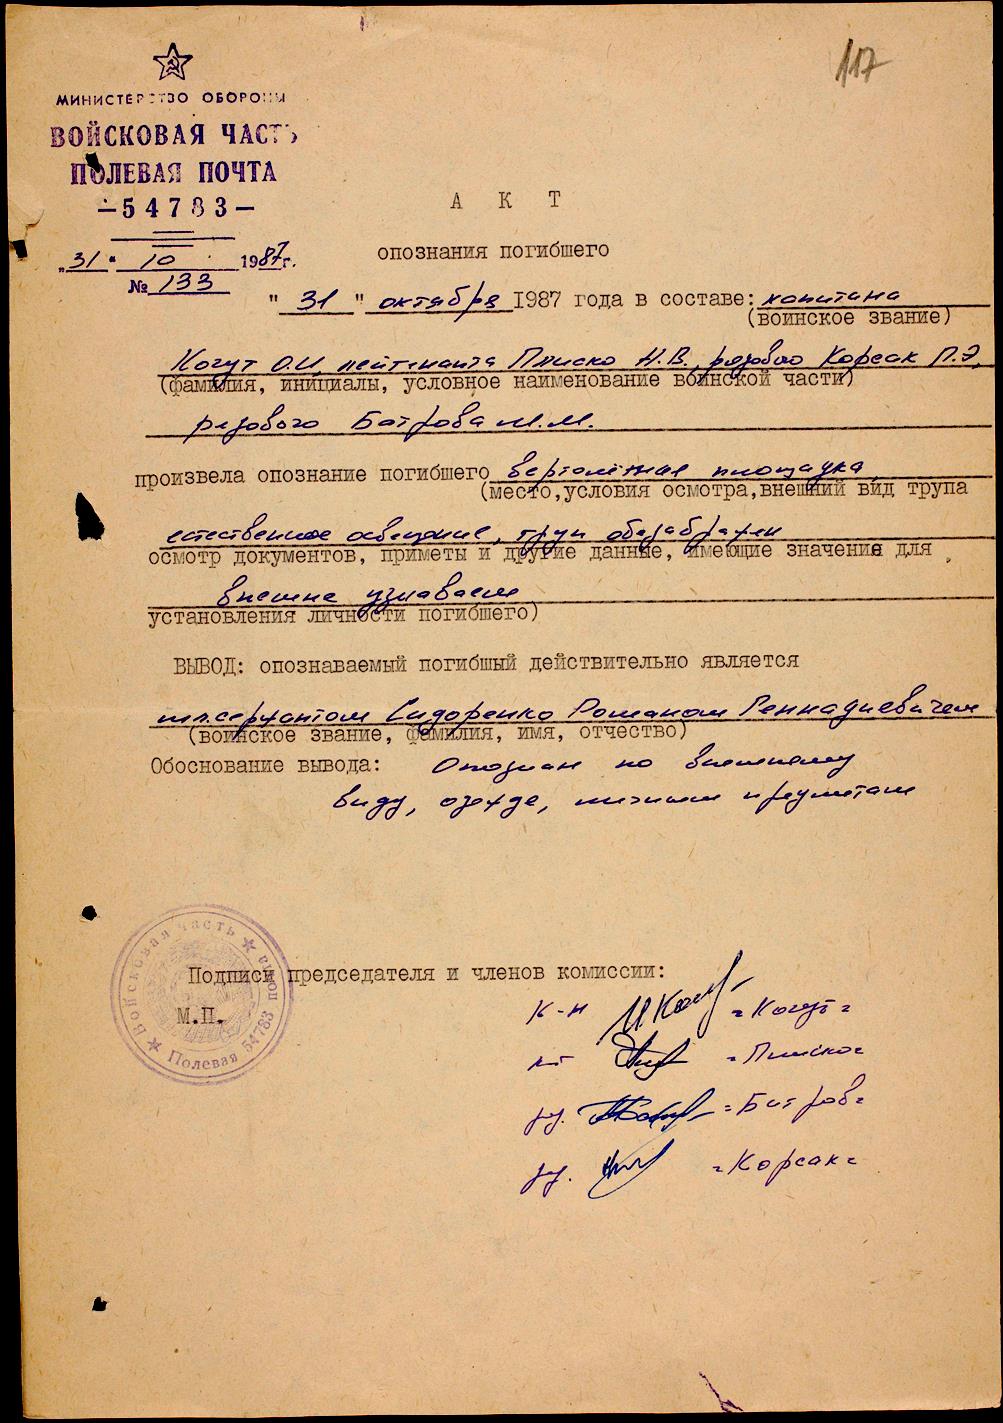 117
МИНИСТЕРСТВО ОБОРОНЫ
ВОЙСКОВАЯ ЧАСТЬ
ПОЛЕВАЯ ПОЧТА
—54783—
"31" 10 1987г.
№ 133
А К Т
опознания погибшего
"31" октября 1987 года в составе: капитана
(воинское звание)
Когут О.И, лейтенанта Плиско Н.В., рядового Корсак П.Э,
(фамилия, инициалы, условное наименование воинской части)
рядового Батрова М.М.
произвела опознание погибшего вертолетная площадка
(место,условия осмотра,внешний вид трупа
естественное освещение, труп обезображен
осмотр документов, приметы и другие данные, имеющие значение для
внешне узнаваем
установления личности погибшего)
ВЫВОД: опознаваемый погибший действительно является
мл.сержантом Сидоренко Романом Геннадиевичем
(воинское звание, фамилия, имя, отчество)
Обоснование вывода: Опознан по внешнему
виду, одежде, личным предметам
Подписи председателя и членов комиссии:
М.П.
Войсковая часть
Полевая почта 54783
к-н -Когут-
л-т -Плиско-
ряд. -Батров-
ряд. -Корсак-